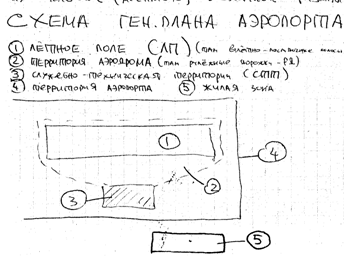 СХЕМА ГЕН. ПЛАНА АЭРОПОРТА
① ЛЁТНОЕ ПОЛЕ (ЛП) (там взлётно-посадочные
② ТЕРРИТОРИЯ АЭРОДРОМА (там рулёжные дорожки - РД)
③ СЛУЖЕБНО - ТЕХНИЧЕСКАЯ ТЕРРИТОРИЯ (СТТ)
④ ТЕРРИТОРИЯ АЭРОПОРТА ⑤ ЖИЛАЯ ЗОНА
①
②
③
④
⑤